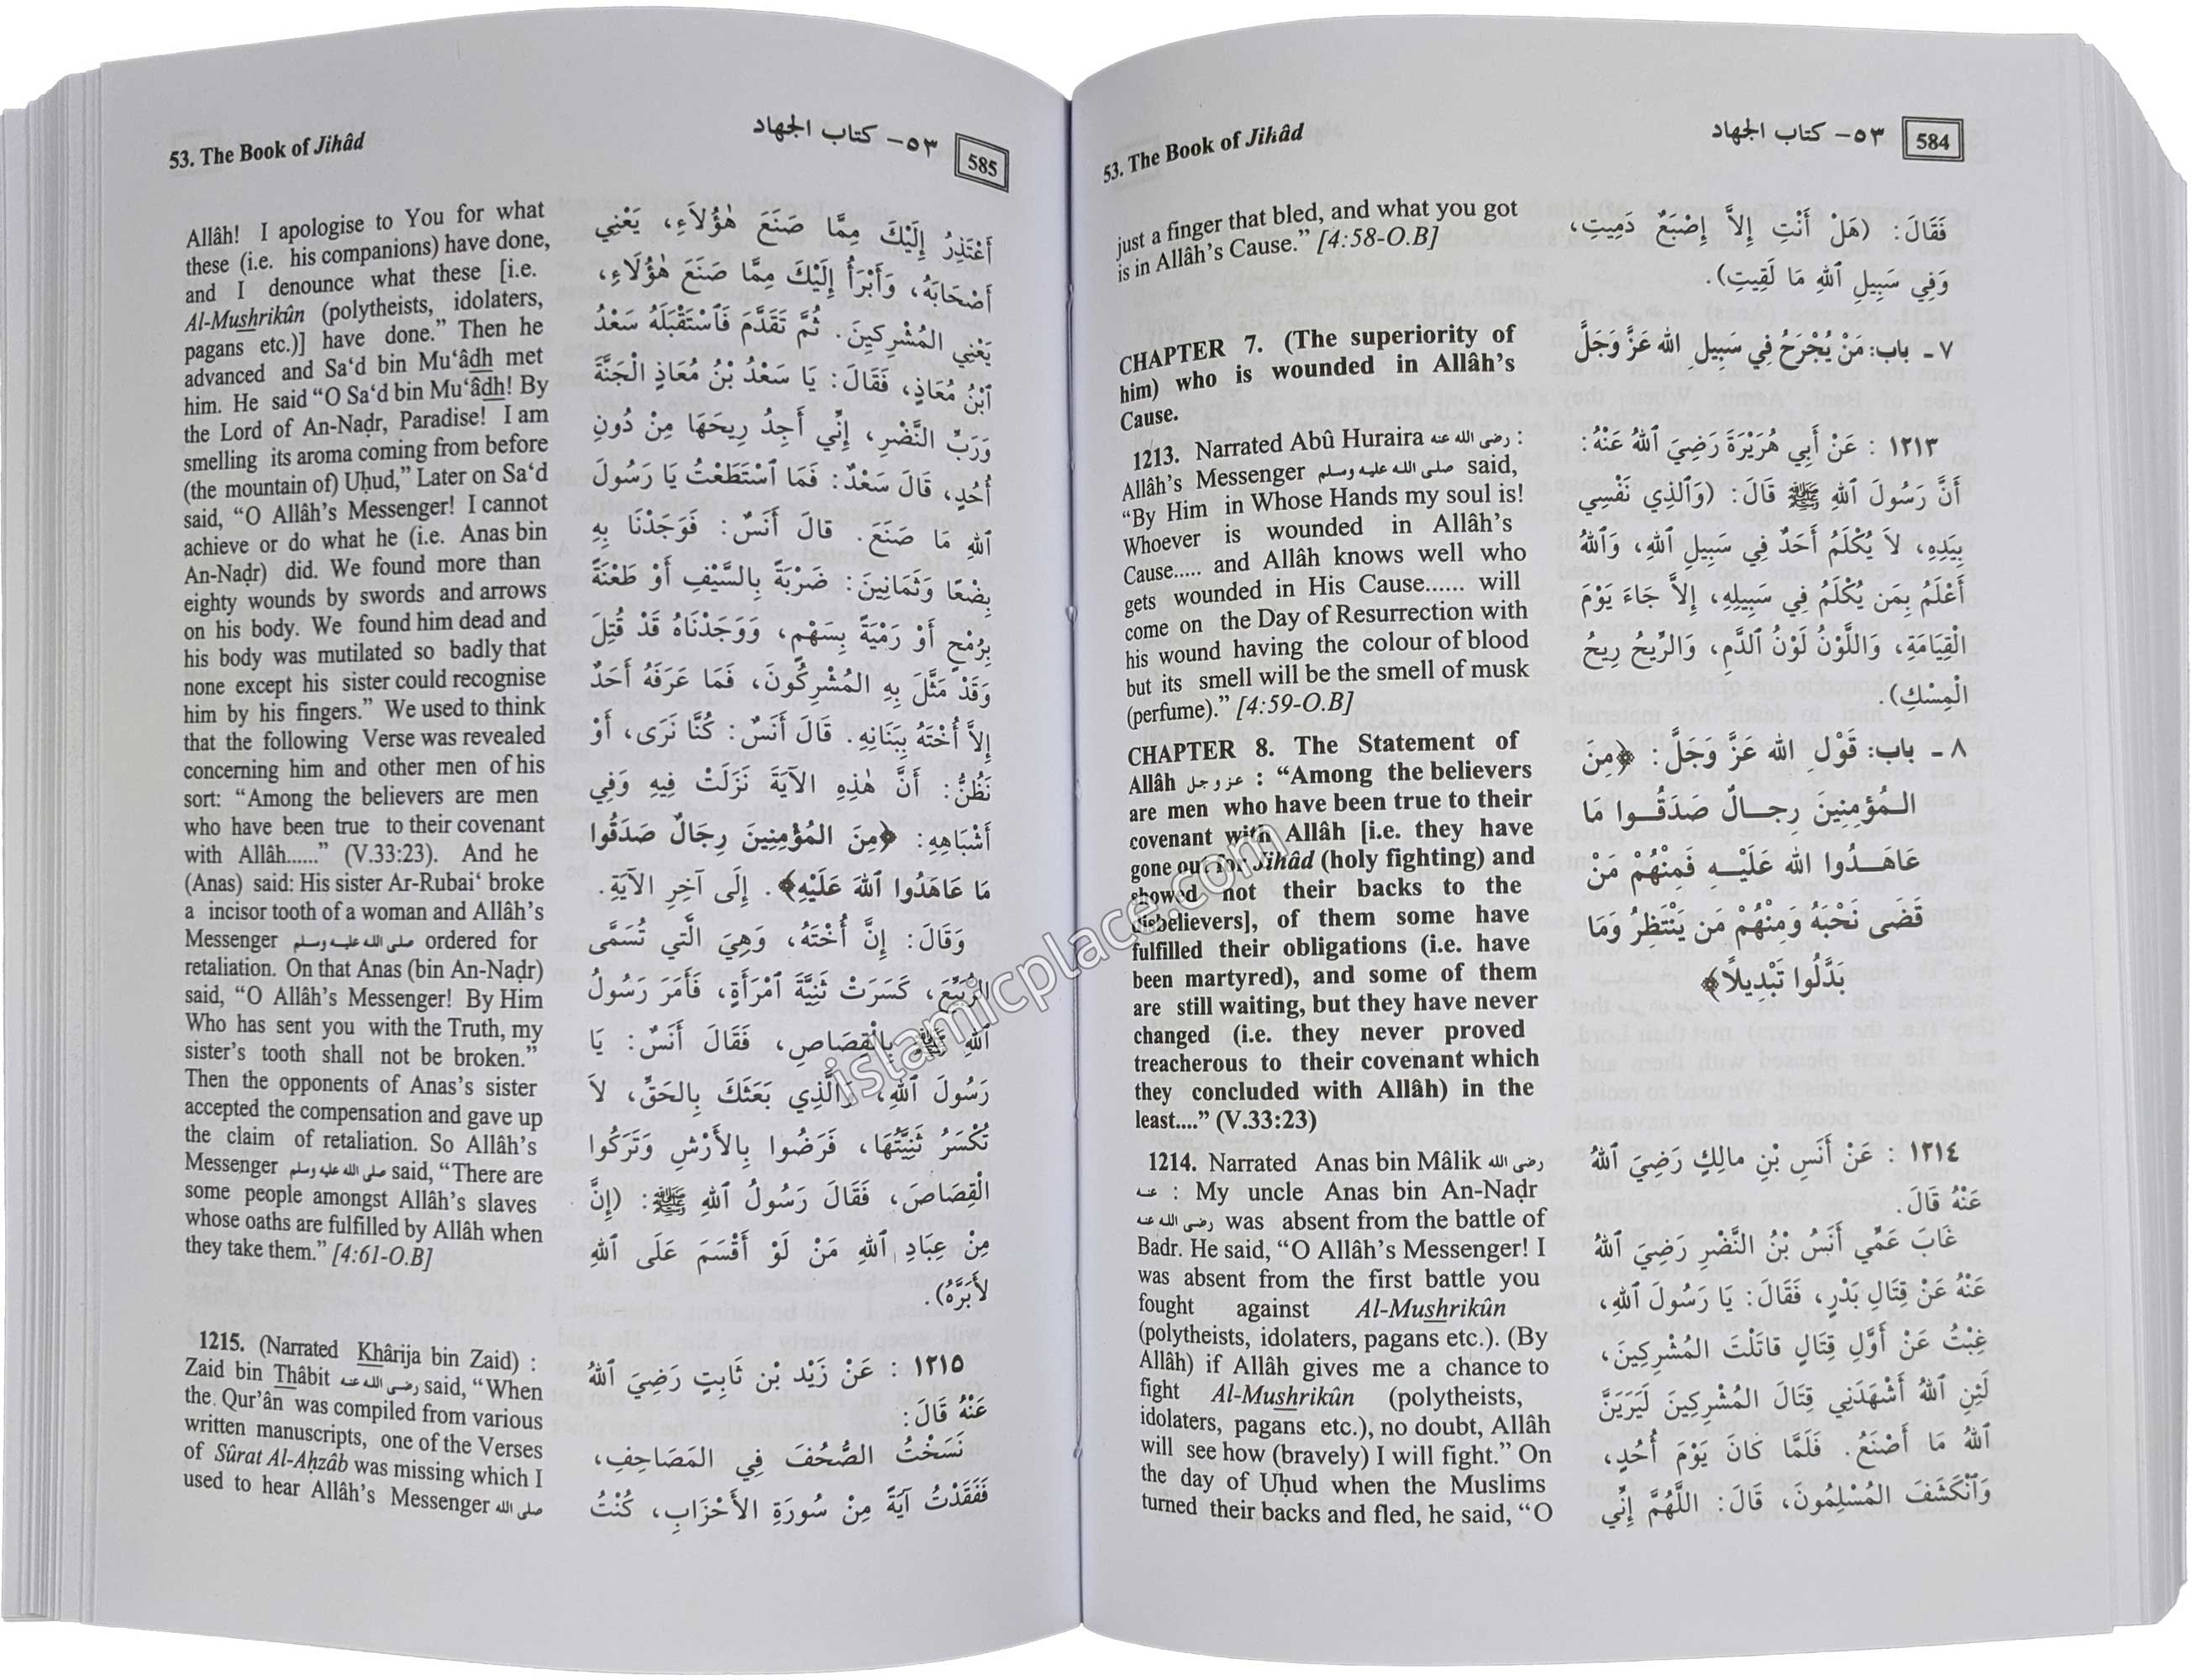 584
٥٣- كتاب الجهاد
53. The Book of Jihâd
فَقَالَ: (هَلْ أَنْتِ إِلاَّ إِصْبَعٌ دَمِيتِ،
وَفِي سَبِيلِ اللهِ مَا لَقِيتِ).
٧ ـ باب: مَنْ يُجْرَحُ فِي سَبِيلِ الله عَزَّ وَجَلَّ
١٢١٣ : عَنْ أَبِي هُرَيْرَةَ رَضِيَ ٱللهُ عَنْهُ:
أَنَّ رَسُولَ ٱللهِ ﷺ قَالَ: (وَٱلَّذِي نَفْسِي
بِيَدِهِ، لاَ يُكْلَمُ أَحَدٌ فِي سَبِيلِ ٱللهِ، وَٱللهُ
أَعْلَمُ بِمَن يُكْلَمُ فِي سَبِيلِهِ، إِلاَّ جَاءَ يَوْمَ
الْقِيَامَةِ، وَاللَّوْنُ لَوْنُ ٱلدَّمِ، وَالرِّيحُ رِيحُ
الْمِسْكِ).
٨ ـ باب: قَوْلِ الله عَزَّ وَجَلَّ: ﴿مِنَ
الـمُؤمِنِينَ رِجـالٌ صَدَقُـوا مَا
عَاهَـدُوا الله عَلَيْـهِ فَمِنْهُمْ مَنْ
قَضَى نَحْبَهُ وَمِنْهُمْ مَن يَنْتَظِرُ وَمَا
بَدَّلُوا تَبْدِيلاً﴾
١٢١٤ : عَنْ أَنَسِ بْنِ مالِكٍ رَضِيَ ٱللهُ
عَنْهُ قَالَ.
غَابَ عَمِّي أَنَسُ بْنُ النَّضْرِ رَضِيَ ٱللهُ
عَنْهُ عَنْ قِتَالِ بَدْرٍ، فَقَالَ: يَا رَسُولَ ٱللهِ،
غِبْتُ عَنْ أَوَّلِ قِتَالٍ قاتَلْتَ المُشْرِكِينَ،
لَئِنِ ٱللهُ أَشْهَدَنِي قِتَالَ المُشْرِكِينَ لَيَرَيَنَّ
ٱللهُ مَا أَصْنَعُ. فَلَمَّا كانَ يَوْمَ أُحُدٍ،
وَٱنْكَشَفَ المُسْلِمُونَ، قَالَ: اللَّهُمَّ إِنِّي
just a finger that bled, and what you got
is in Allâh’s Cause.” [4:58-O.B]
CHAPTER 7. (The superiority of
him) who is wounded in Allâh’s
Cause.
1213. Narrated Abû Huraira رضى الله عنه :
Allâh’s Messenger صلى الله عليه وسلم said,
“By Him in Whose Hands my soul is!
Whoever is wounded in Allâh’s
Cause..... and Allâh knows well who
gets wounded in His Cause...... will
come on the Day of Resurrection with
his wound having the colour of blood
but its smell will be the smell of musk
(perfume).” [4:59-O.B]
CHAPTER 8. The Statement of
Allâh عز وجل : “Among the believers
are men who have been true to their
covenant with Allâh [i.e. they have
gone out for Jihâd (holy fighting) and
showed not their backs to the
disbelievers], of them some have
fulfilled their obligations (i.e. have
been martyred), and some of them
are still waiting, but they have never
changed (i.e. they never proved
treacherous to their covenant which
they concluded with Allâh) in the
least....” (V.33:23)
1214. Narrated Anas bin Mâlik رضى الله
عنه : My uncle Anas bin An-Naḍr
رضى الله عنه was absent from the battle of
Badr. He said, “O Allâh’s Messenger! I
was absent from the first battle you
fought against Al-Mushrikûn
(polytheists, idolaters, pagans etc.). (By
Allâh) if Allâh gives me a chance to
fight Al-Mushrikûn (polytheists,
idolaters, pagans etc.), no doubt, Allâh
will see how (bravely) I will fight.” On
the day of Uḥud when the Muslims
turned their backs and fled, he said, “O
585
٥٣- كتاب الجهاد
53. The Book of Jihâd
أَعْتَذِرُ إِلَيْكَ مِمَّا صَنَعَ هٰؤُلاَءِ، يَعْنِي
أَصْحَابَهُ، وَأَبْرَأُ إِلَيْكَ مِمَّا صَنَعَ هٰؤُلاَءِ،
يَعْنِي المُشْرِكِينَ. ثُمَّ تَقَدَّمَ فَٱسْتَقْبَلَهُ سَعْدُ
ٱبْنُ مُعَاذٍ، فَقَالَ: يَا سَعْدُ بْنُ مُعَاذٍ الْجَنَّةَ
وَرَبِّ النَّضْرِ، إِنِّي أَجِدُ رِيحَهَا مِنْ دُونِ
أُحُدٍ، قَالَ سَعْدٌ: فَمَا ٱسْتَطَعْتُ يَا رَسُولَ
ٱللهِ مَا صَنَعَ. قالَ أَنَسٌ: فَوَجَدْنَا بِهِ
بِضْعًا وَثَمَانِينَ: ضَرْبَةً بِالسَّيْفِ أَوْ طَعْنَةً
بِرُمْحٍ أَوْ رَمْيَةً بِسَهْمٍ، وَوَجَدْنَاهُ قَدْ قُتِلَ
وَقَدْ مَثَّلَ بِهِ المُشْرِكُونَ، فَمَا عَرَفَهُ أَحَدٌ
إِلاَّ أُخْتُهُ بِبَنَانِهِ. قَالَ أَنَسٌ: كُنَّا نَرَى، أَوْ
نَظُنُّ: أَنَّ هٰذِهِ الآيَةَ نَزَلَتْ فِيهِ وَفِي
أَشْبَاهِهِ: ﴿مِنَ المُؤْمِنِينَ رِجَالٌ صَدَقُوا
مَا عَاهَدُوا ٱللهَ عَلَيْهِ﴾. إِلَى آخِرِ الآيَةِ.
وَقَالَ: إِنَّ أُخْتَهُ، وَهِيَ الَّتِي تُسَمَّى
الرُّبَيِّعَ، كَسَرَتْ ثَنِيَّةَ ٱمْرَأَةٍ، فَأَمَرَ رَسُولُ
ٱللهِ ﷺ بِالْقِصَاصِ، فَقَالَ أَنَسٌ: يَا
رَسُولَ ٱللهِ، وَالَّذِي بَعَثَكَ بِالحَقِّ، لاَ
تُكْسَرُ ثَنِيَّتُهَا، فَرَضُوا بِالأَرْشِ وَتَرَكُوا
الْقِصَاصَ، فَقَالَ رَسُولُ ٱللهِ ﷺ: (إِنَّ
مِنْ عِبَادِ ٱللهِ مَنْ لَوْ أَقْسَمَ عَلَى ٱللهِ
لأَبَرَّهُ).
١٢١٥ : عَنْ زَيْد بْن ثَابِتٍ رَضِيَ ٱللهُ
عَنْهُ قَالَ:
نَسَخْتُ الصُّحُفَ فِي المَصَاحِفِ،
فَفَقَدْتُ آيَةً مِنْ سُورَةِ الأَحْزَابِ، كُنْتُ
Allâh! I apologise to You for what
these (i.e. his companions) have done,
and I denounce what these [i.e.
Al-Mushrikûn (polytheists, idolaters,
pagans etc.)] have done.” Then he
advanced and Sa‘d bin Mu‘âdh met
him. He said “O Sa‘d bin Mu‘âdh! By
the Lord of An-Naḍr, Paradise! I am
smelling its aroma coming from before
(the mountain of) Uḥud,” Later on Sa‘d
said, “O Allâh’s Messenger! I cannot
achieve or do what he (i.e. Anas bin
An-Naḍr) did. We found more than
eighty wounds by swords and arrows
on his body. We found him dead and
his body was mutilated so badly that
none except his sister could recognise
him by his fingers.” We used to think
that the following Verse was revealed
concerning him and other men of his
sort: “Among the believers are men
who have been true to their covenant
with Allâh......” (V.33:23). And he
(Anas) said: His sister Ar-Rubai‘ broke
a incisor tooth of a woman and Allâh’s
Messenger صلى الله عليه وسلم ordered for
retaliation. On that Anas (bin An-Naḍr)
said, “O Allâh’s Messenger! By Him
Who has sent you with the Truth, my
sister’s tooth shall not be broken.”
Then the opponents of Anas’s sister
accepted the compensation and gave up
the claim of retaliation. So Allâh’s
Messenger صلى الله عليه وسلم said, “There are
some people amongst Allâh’s slaves
whose oaths are fulfilled by Allâh when
they take them.” [4:61-O.B]
1215. (Narrated Khârija bin Zaid) :
Zaid bin Thâbit رضى الله عنه said, “When
the Qur’ân was compiled from various
written manuscripts, one of the Verses
of Sûrat Al-Aḥzâb was missing which I
used to hear Allâh’s Messenger صلى الله
islamicplace.com